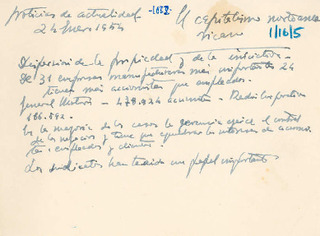 noticias de actualidad
24 mayo 1954
-1682-
El capitalismo norteame
ricano
1/16/5
Dispersión de la propiedad y de la iniciativa.
De 31 empresas manufactureras más importantes 24
tienen más accionistas que empleados.
General Motors -
186.592.
En la mayoría de los casos la gerencia ejerce el control
de los negocios y tiene que equilibrar los intereses de accionis
tas, empleados y clientes.
Los sindicatos han tenido un papel importante